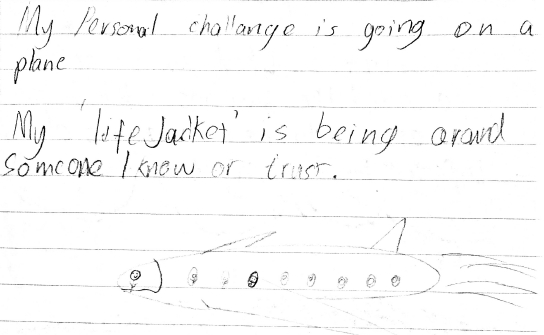 My Personal challange is going on a
plane
My 'life Jacket' is being around
someone I know or trust.